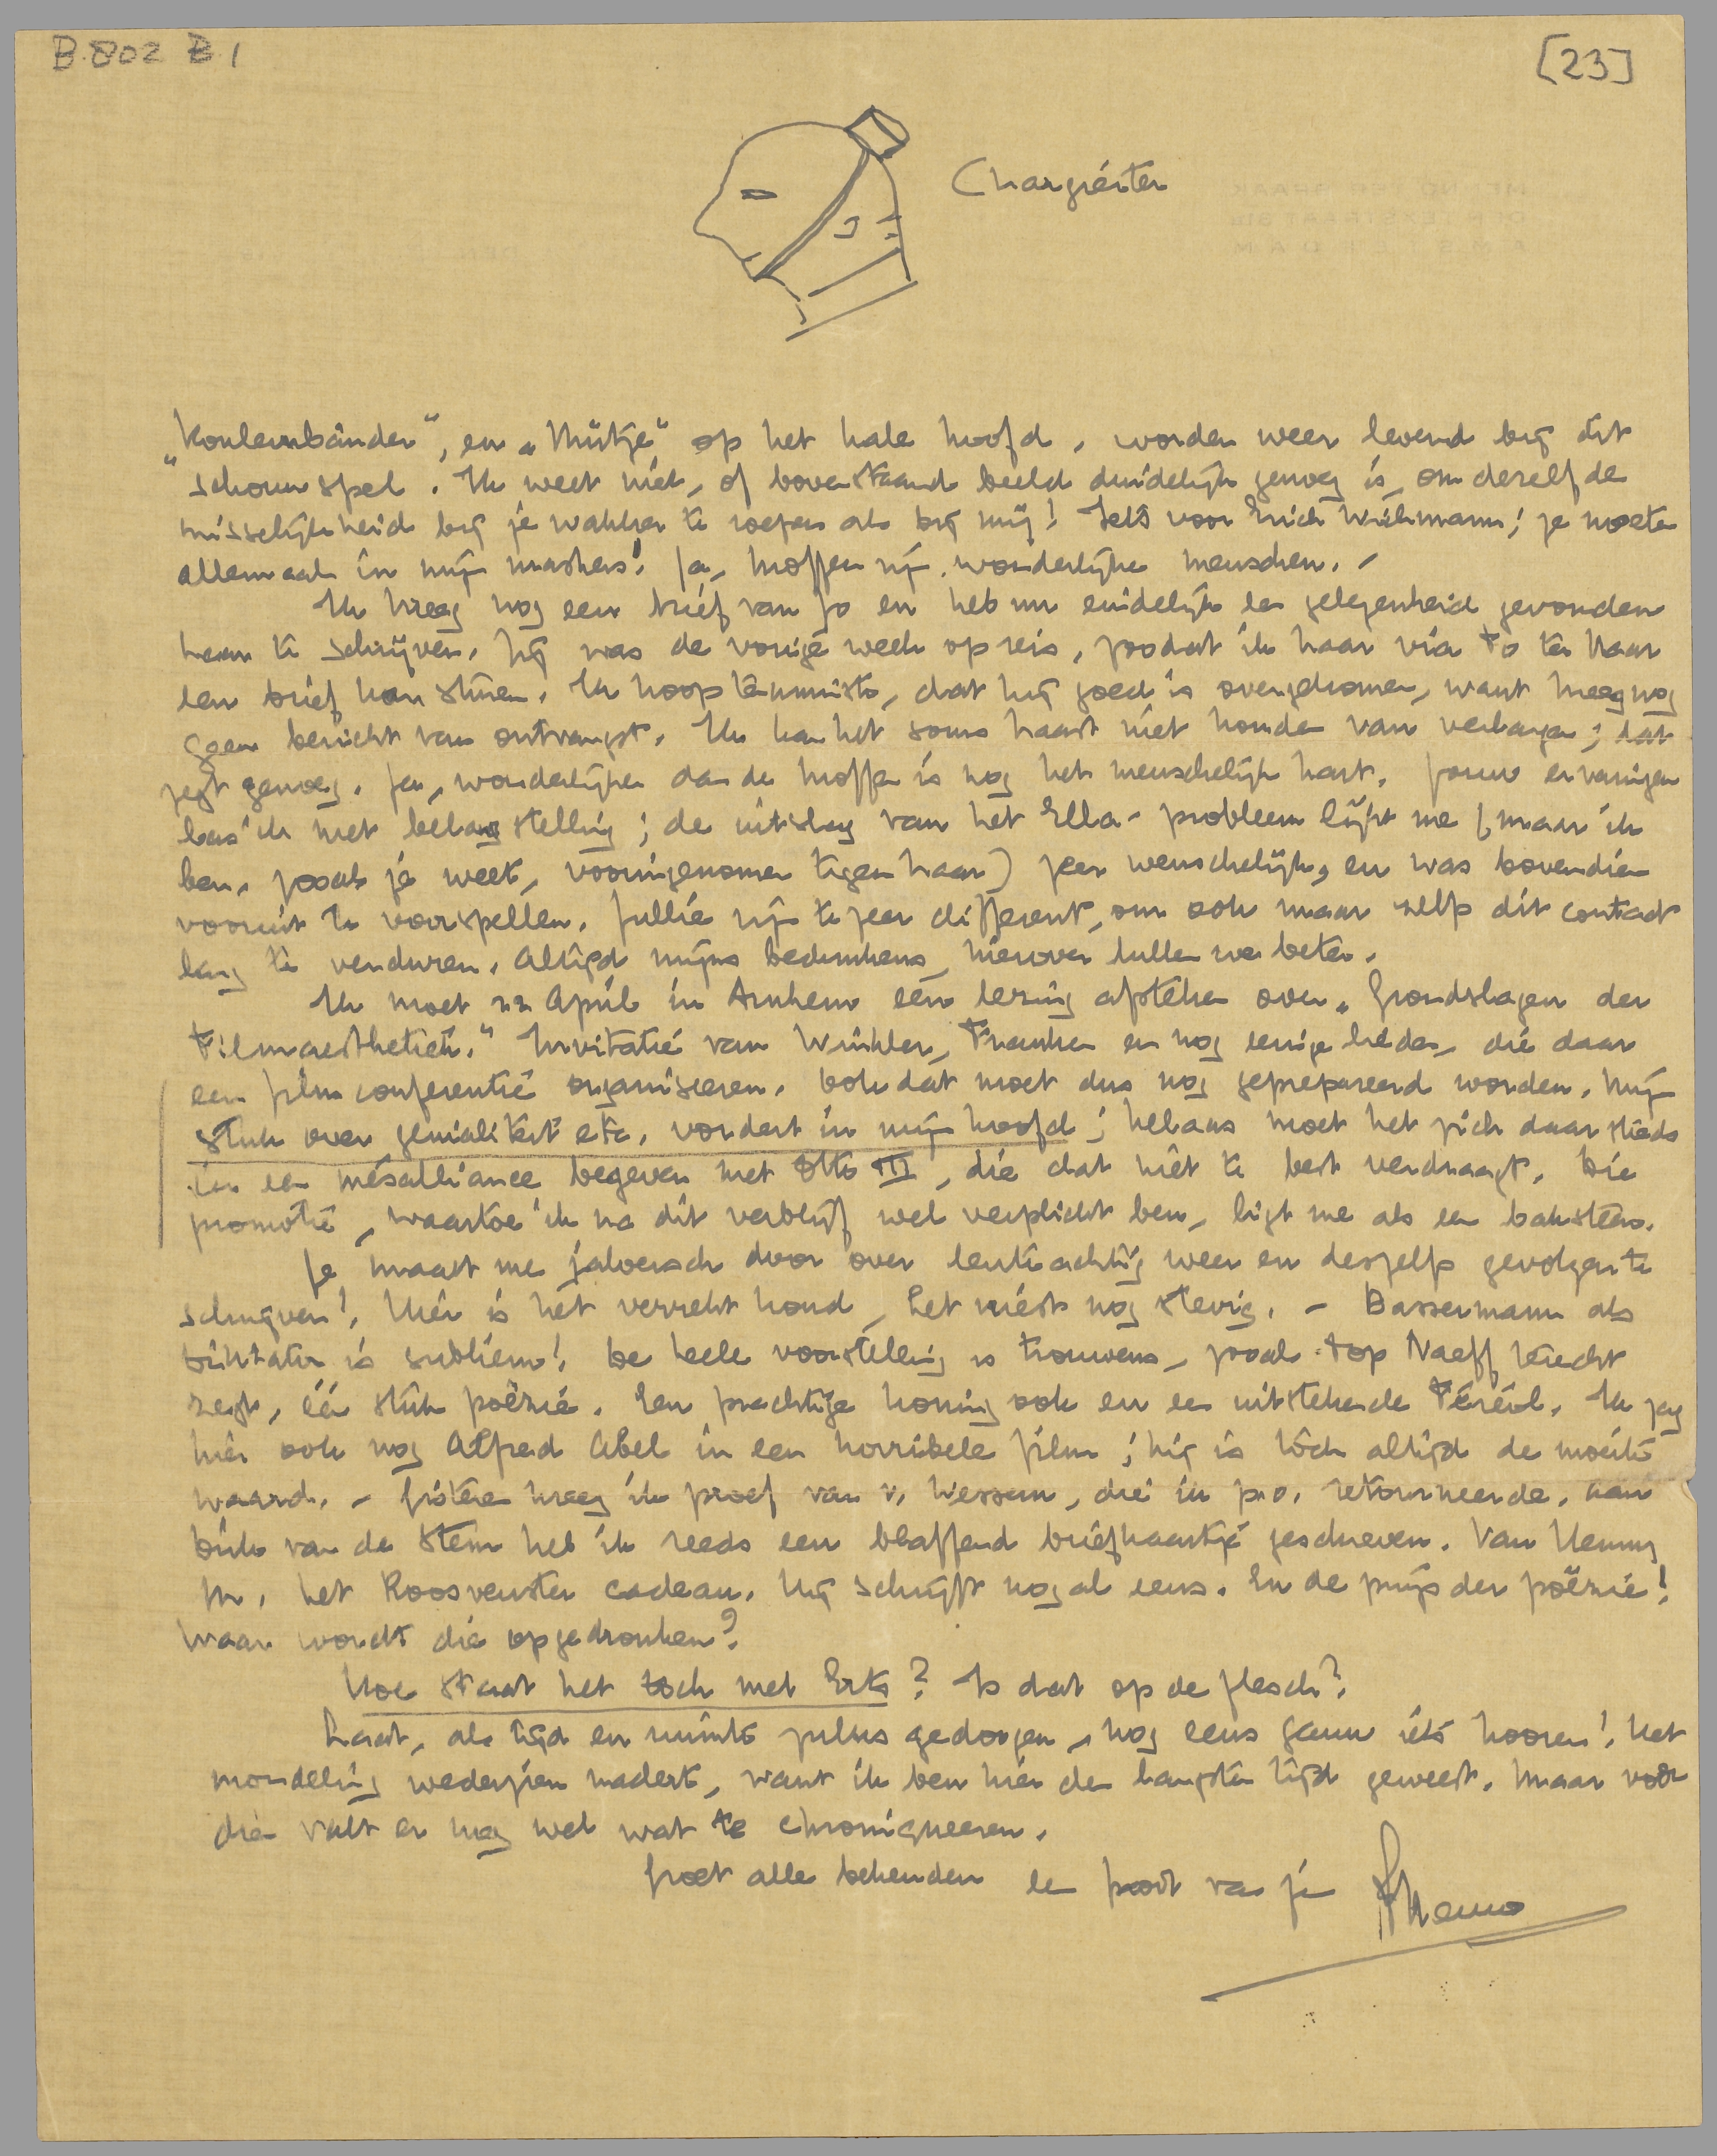 B.802 B.1
[23]
Chargierter
„Couleurbänder", en „Mütze" op het kale hoofd, worden weer levend bij dit
schouwspel. Ik weet niet, of bovenstaand beeld duidelijk genoeg is, om dezelfde
misselijkheid bij je wakker te roepen als bij mij! Iets voor Erich Wichmann; ze moeten
allemaal in mijn maskers! Ja, moffen zijn wonderlijke menschen. -
Ik kreeg nog een brief van Jo en heb nu eindelijk de gelegenheid gevonden
haar te schrijven. Hij was de vorige week op reis, zoodat ik haar via to ter Haar
een brief kon sturen. Ik hoop tenminste, dat hij goed is overgekomen, want kreeg nog
geen bericht van ontvangst. Ik kan het soms haast niet houden van verlangen; dat
zegt genoeg. Ja, wonderlijker dan de moffen is nog het menschelijk hart. Jouw ervaringen
las ik met belangstelling; de uitslag van het Ella-probleem lijkt me (maar ik
ben, zooals je weet, vooringenomen tegen haar) zeer wenschelijk, en was bovendien
vooruit te voorspellen. Jullie zijn te zeer different, om ook maar zelfs dit contact
lang te verduren. Altijd mijns bedunkens, hierover lullen we beter.
Ik moet 22 April in Arnhem een lezing afsteken over „Grondslagen der
Filmaesthetiek." Invitatie van Winkler, Franken en nog eenige lieden, die daar
een filmconferentie organiseeren. Ook dat moet dus nog geprepareerd worden. Mijn
stuk over genialiteit etc. vordert in mijn hoofd; helaas moet het zich daar steeds
in een mésalliance begeven met Otto III, die dat niet te best verdraagt. Die
promotie, waartoe ik na dit verblijf wel verplicht ben, ligt me als een baksteen.
Je maakt me jaloersch door over lenteachtig weer en deszelfs gevolgen te
schrijven! Hier is het verrekt koud, het vriest nog stevig. - Bassermann als
Dictator is subliem! De heele voorstelling is trouwens, zooals Top Naeff terecht
zegt, één stuk poëzie. Een prachtige koning ook en een uitstekende Féréol. Ik zag
hier ook nog Alfred Abel in een horribele film; hij is tòch altijd de moeite
waard. - Gisteren kreeg ik proef van v. Wessem, die in p.o. retourneerde. Aan
Dirk van de Stem heb ik reeds een blaffend briefkaartje geschreven. Van Henny
M. het Roosvenster cadeau. Hij schrijft nog al eens. En de prijs der poëzie!
Waar wordt die opgedronken?
Hoe staat het toch met Erts? Is dat op de flesch?
Laat, als tijd en ruimte zulks gedoogen, nog eens gauw iets hooren! Het
mondeling wederzien nadert, want ik ben hier den langsten tijd geweest. Maar vóór
dien valt er nog wel wat te chroniqueeren.
Groet alle bekenden en poot van je Menno